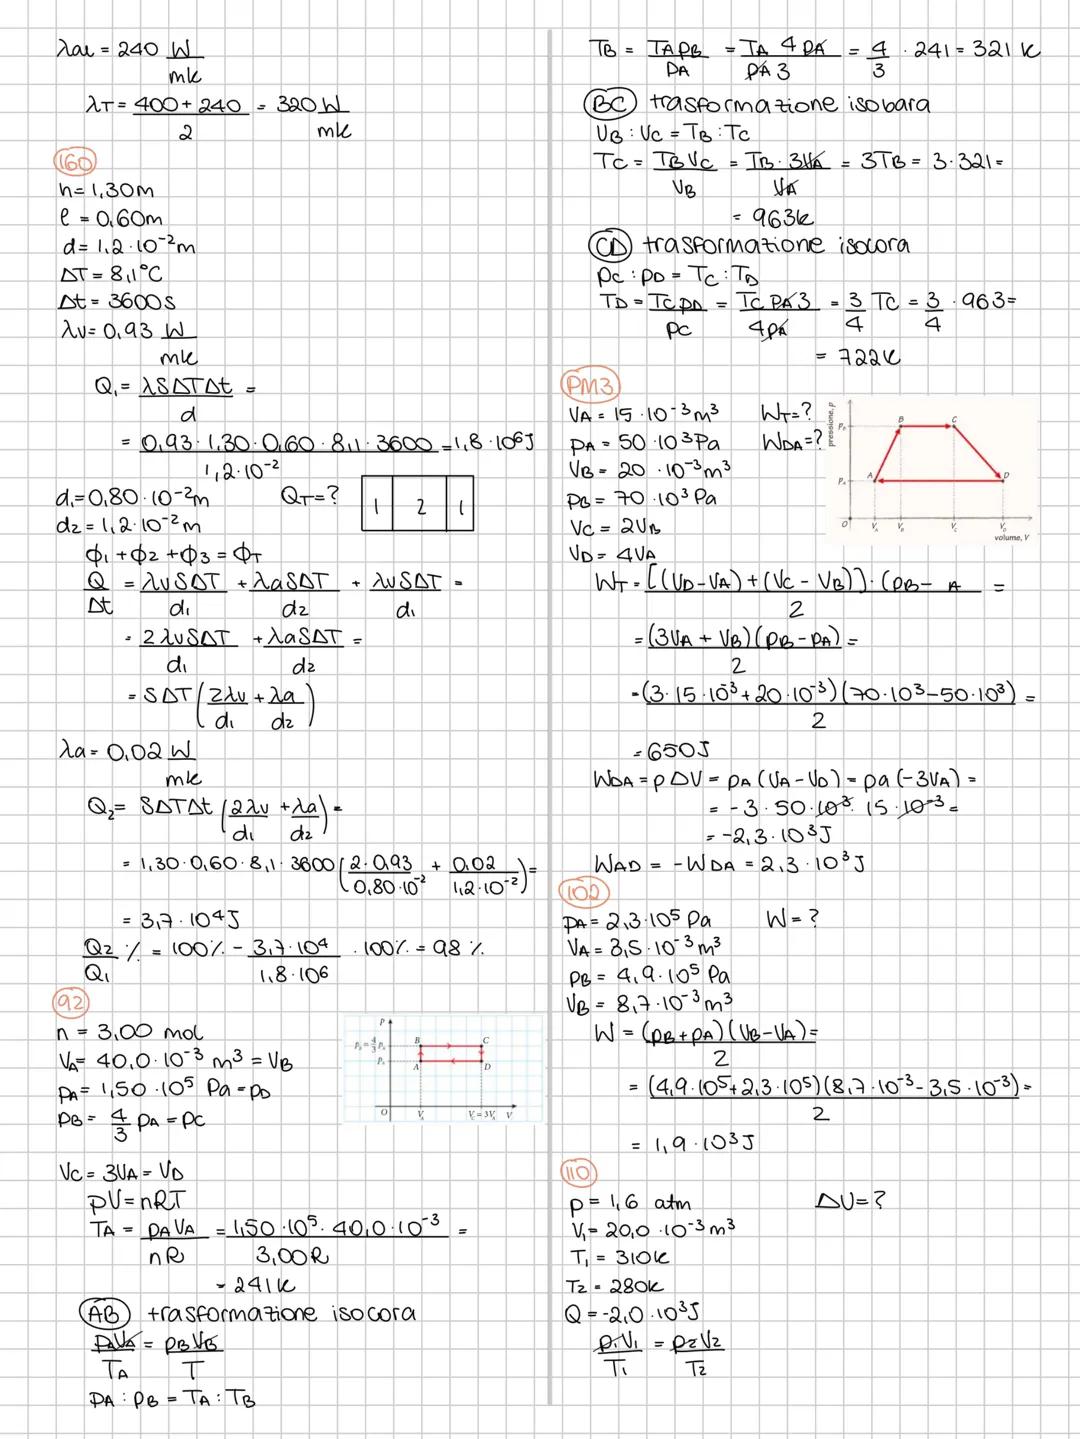 λal = 240 W/mk
λT = (400 + 240)/2 = 320 W/mk
160
h = 1,30m
l = 0,60m
d = 1,2 · 10⁻² m
ΔT = 8,1°C
Δt = 3600s
λv = 0,93 W/mk
Q₁ = λSΔTΔt/d =
= 0,93 · 1,30 · 0,60 · 8,1 · 3600/1,2 · 10⁻² = 1,8 · 10⁶ J
d₁ = 0,80 · 10⁻² m QT = ? 1 2 1
d₂ = 1,2 · 10⁻² m
Φ₁ + Φ₂ + Φ₃ = ΦT
Q/Δt = λvSΔT/d₁ + λaSΔT/d₂ + λvSΔT/d₁ =
= 2λvSΔT/d₁ + λaSΔT/d₂ =
= SΔT (2λv/d₁ + λa/d₂)
λa = 0,02 W/mk
Q₂ = SΔTΔt (2λv/d₁ + λa/d₂) =
= 1,30 · 0,60 · 8,1 · 3600 (2 · 0,93/0,80 · 10⁻² + 0,02/1,2 · 10⁻²) =
= 3,7 · 10⁴ J
Q₂/Q₁ % = 100% - 3,7 · 10⁴/1,8 · 10⁶ · 100% = 98 %
92
n = 3,00 mol
VA = 40,0 · 10⁻³ m³ = VB
pA = 1,50 · 10⁵ Pa = pD
pB = 4/3 pA = pC
p
p_B = 4/3 p_A B C
p_A A D
O V_A V_C = 3V_A V
VC = 3VA = VD
pV = nRT
TA = pAVA/nR = 1,50 · 10⁵ · 40,0 · 10⁻³/3,00R =
= 241k
AB trasformazione isocora
pAVA/TA = pBVB/T
pA : pB = TA : TB
TB = TApB/pA = TA 4pA/pA 3 = 4/3 · 241 = 321 k
BC trasformazione isobara
VB : VC = TB : TC
TC = TBVC/VB = TB · 3VA/VA = 3TB = 3 · 321 =
= 963k
CD trasformazione isocora
pC : pD = TC : TD
TD = TCpD/pC = TC pA 3/4pA = 3/4 TC = 3/4 · 963 =
= 722k
PM3
VA = 15 · 10⁻³ m³ WT = ?
pA = 50 · 10³ Pa WDA = ?
VB = 20 · 10⁻³ m³
pB = 70 · 10³ Pa
VC = 2VB
VD = 4VA
pressione, p
p_B B C
p_A A D
O V_A V_B V_C V_D
volume, V
WT = [(VD - VA) + (VC - VB)] · (pB - A/2 =
= (3VA + VB)(pB - pA)/2 =
= (3 · 15 · 10⁻³ + 20 · 10⁻³)(70 · 10³ - 50 · 10³)/2 =
= 650J
WDA = pΔV = pA (VA - VD) = pa (-3VA) =
= -3 · 50 · 10³ · 15 · 10⁻³ =
= -2,3 · 10³ J
WAD = -WDA = 2,3 · 10³ J
102
pA = 2,3 · 10⁵ Pa W = ?
VA = 3,5 · 10⁻³ m³
pB = 4,9 · 10⁵ Pa
VB = 8,7 · 10⁻³ m³
W = (pB + pA)(VB - VA)/2 =
= (4,9 · 10⁵ + 2,3 · 10⁵)(8,7 · 10⁻³ - 3,5 · 10⁻³)/2 =
= 1,9 · 10³ J
110
p = 1,6 atm ΔU = ?
V₁ = 20,0 · 10⁻³ m³
T₁ = 310k
T₂ = 280k
Q = -2,0 · 10³ J
p₁V₁/T₁ = p₂V₂/T₂